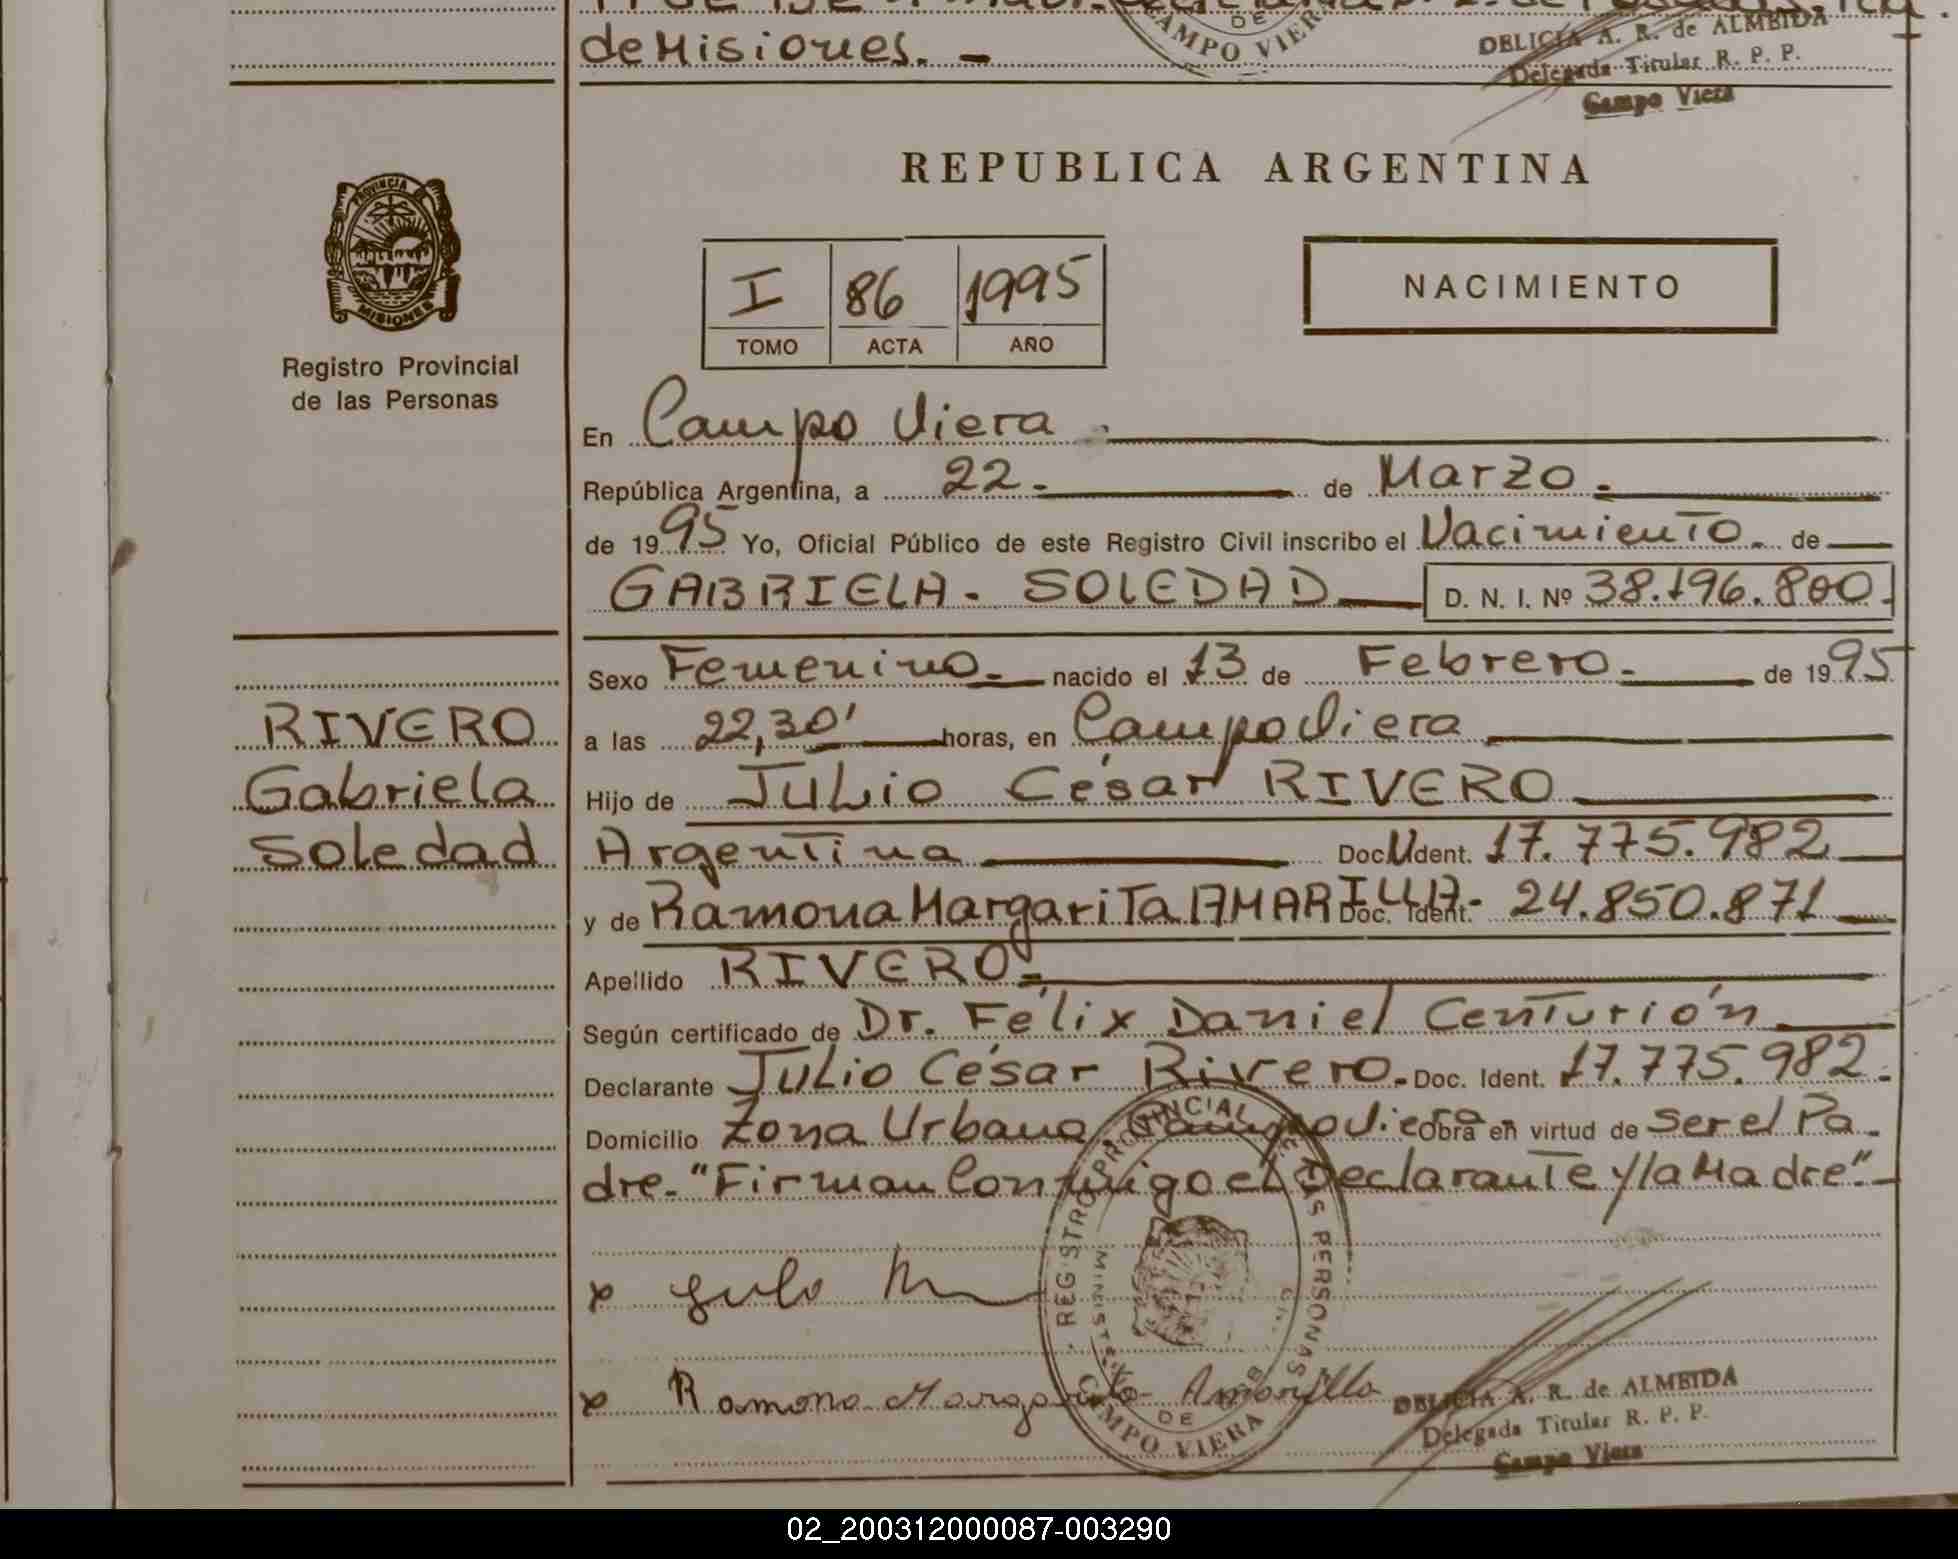 de Misiones. -
CAMPO VIERA
DE
DELICIA A. R. de ALMEIDA
Delegada Titular R. P. P.
Campo Viera
PROVINCIA
MISIONES
Registro Provincial
de las Personas
REPUBLICA ARGENTINA
I 86 1995
TOMO ACTA AÑO
NACIMIENTO
En Campo Viera
República Argentina, a 22.- de Marzo.-
de 1995 Yo, Oficial Público de este Registro Civil inscribo el Nacimiento. de
GABRIELA - SOLEDAD D. N. I. Nº 38.196.800.
Sexo Femenino.- nacido el 13 de Febrero.- de 1995
RIVERO
Gabriela
Soledad
a las 22,30' horas, en Campo Viera
Hijo de JULio César RIVERO
Argentina Doc. U Ident. 17.775.982
y de Ramona Margarita AMARILLA- Doc. Ident. 24.850.871
Apellido RIVERO.-
Según certificado de Dr. Félix Daniel Centurión
Declarante JULio César Rivero.- Doc. Ident. 17.775.982.
Domicilio Zona Urbana, Campo Viera Obra en virtud de Ser el Pa-
dre.- "Firman Conmigo el Declarante y la Madre".-
x Julo
x Ramona Margarita Amarilla
REGISTRO PROVINCIAL DE LAS PERSONAS
DE
CAMPO VIERA
DELICIA A. R. de ALMEIDA
Delegada Titular R. P. P.
Campo Viera
02_200312000087-003290